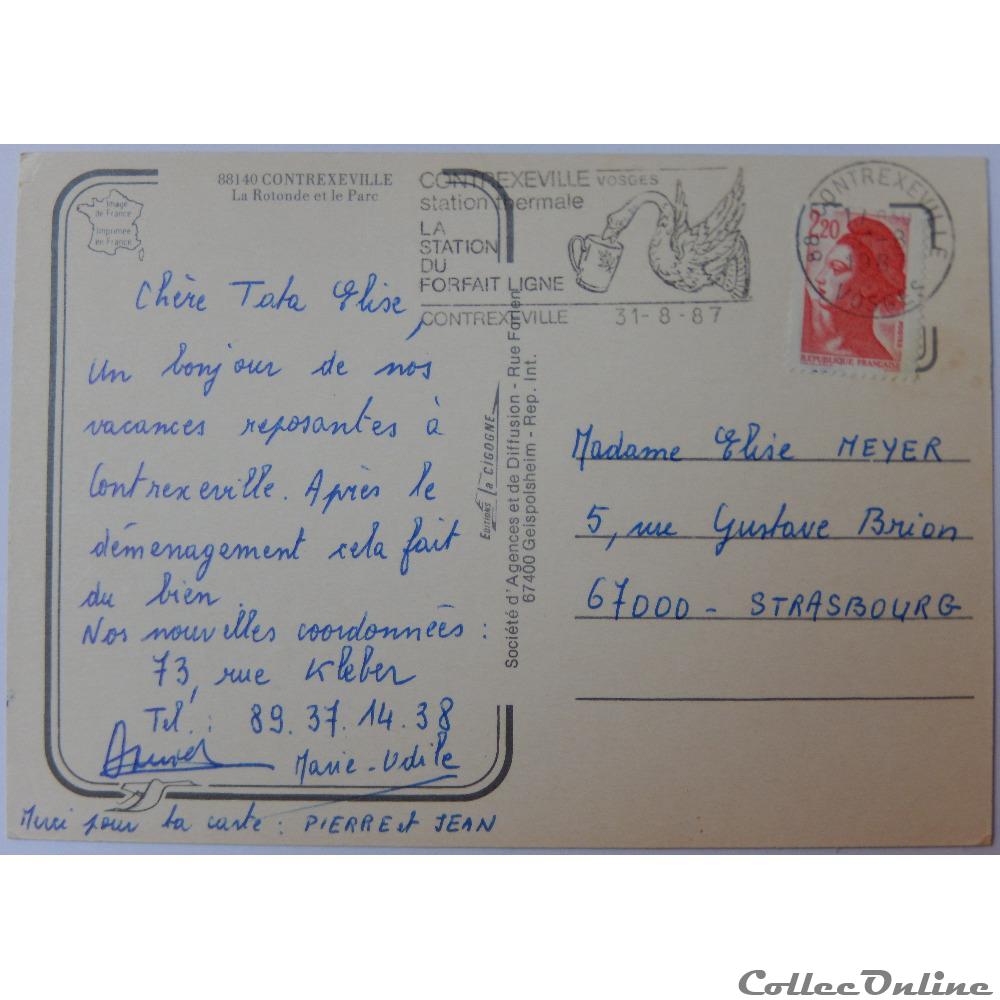 88140 CONTREXEVILLE
La Rotonde et le Parc
Image
de France
Imprimée
en France
Chère Tata Elise,
Un bonjour de nos
vacances reposantes à
Contrexeville. Après le
démenagement cela fait
du bien
Nos nouvelles coordonnées :
73, rue Kleber
Tel. : 89.37.14.38
Marie-Odile
Merci pour ta carte : PIERRE et JEAN
EDITIONS la CIGOGNE
Société d'Agences et de Diffusion - Rue Forlen
67400 Geispolsheim - Rep. Int.
CONTREXEVILLE VOSGES
station thermale
LA
STATION
DU
FORFAIT LIGNE
CONTREXEVILLE 31-8-87
88 CONTREXEVILLE
VOSGES
2,20
REPUBLIQUE FRANÇAISE
POSTES
Madame Elise MEYER
5, rue Gustave Brion
67000 - STRASBOURG
CollecOnline